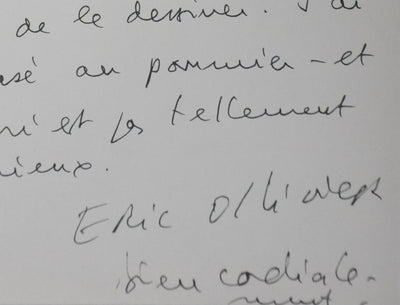 de le dessiner. J'ai
sé au pommier - et
ni est pas tellement
ieux.
ERIC Ollivier
bien cordiale-
ment.